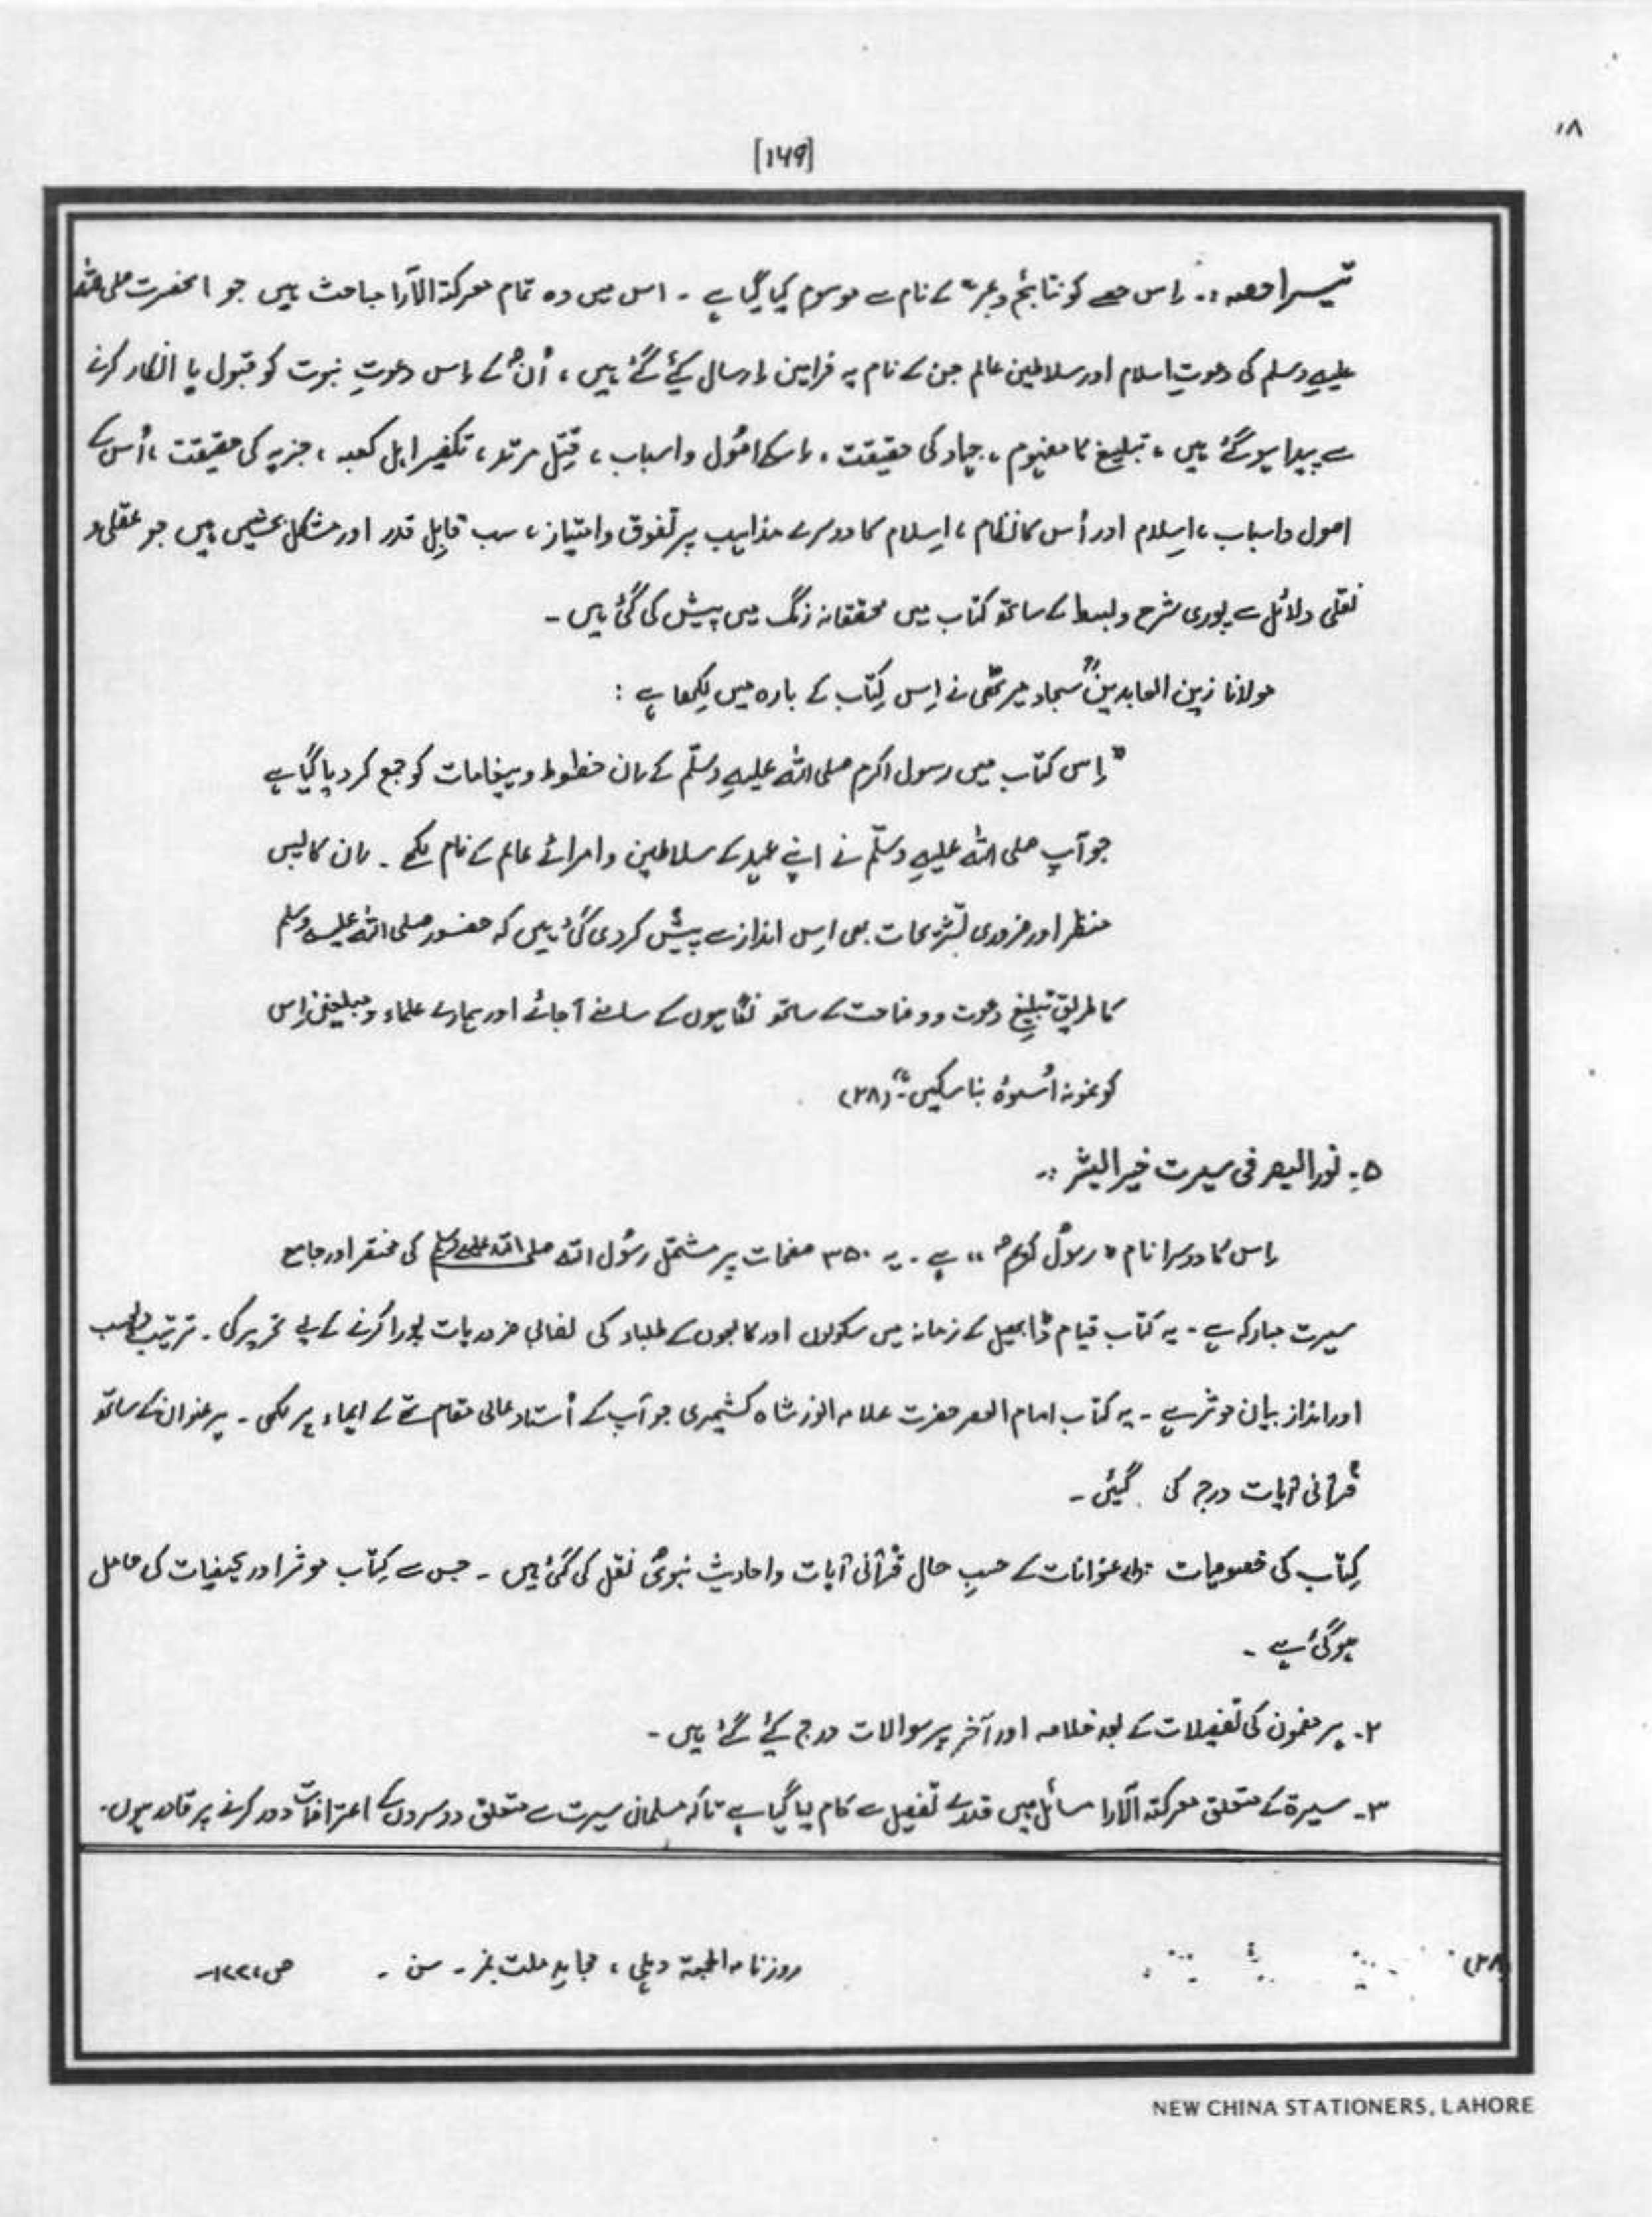 ۱۸
[۱۶۹]
تیسرا حصہ :۔ اِس حصے کو نتائج و عبر" کے نام سے موسوم کیا گیا ہے ۔ اس میں وہ تمام معرکۃ الآرا مباحث ہیں جو آنحضرت صلی اللہ
علیہ وسلم کی دعوتِ اسلام اور سلاطین عالم جن کے نام یہ فرامین اِرسال کئے گئے ہیں ، اُن کے اِس دعوتِ نبوت کو قبول یا انکار کرنے
سے پیدا ہو گئے ہیں ، تبلیغ کا مفہوم ، جہاد کی حقیقت ، اسکے اصُول و اسباب ، قتِل مرتد ، تکفیر اہل کعبہ ، جزیہ کی حقیقت ، اُس کے
اصول و اسباب ، اِسلام اور اُس کا نظام ، اِسلام کا دوسرے مذاہب پر تفوق و امتیاز ، سب قابِل قدر اور مشکل بحثیں ہیں جو عقلی و
نقلی دلائل سے پوری شرح و بسط کے ساتھ کتاب میں محققانہ رنگ میں پیش کی گئ ہیں ۔
مولانا زین العابدین سجاد میرٹھی نے اِس کِتاب کے بارہ میں لِکھا ہے :
" اِس کتاب میں رسول اکرم صلی اللہ علیہِ وسلّم کے اِن خطوط و پیغامات کو جمع کر دیا گیا ہے
جو آپ صلی اللہ علیہِ وسلّم نے اپنے عہد کے سلاطین و امرائے عالم کے نام لکھے ۔ اِن کا پس
منظر اور ضروری تشریحات بھی اِس انداز سے پیش کر دی گئ ہیں کہ حضور صلی اللہ علیہ وسلم
کا طریق تبلیغ دعوت و وضاحت کے ساتھ نگاہوں کے سامنے آ جائے اور ہمارے علماء و مبلغین اِس
کو نمونہ اُسوہ بنا سکیں ۔" (۲۸)
۵۔ نور البصر فی سیرت خیر البشر :۔
اِس کا دوسرا نام " رسول کریم " ہے ۔ یہ ۳۵۰ صفحات پر مشتمل رسُول اللہ صلی اللہ علیہ وسلم کی مختصر اور جامع
سیرت مبارکہ ہے ۔ یہ کتاب قیام ڈابھیل کے زمانہ میں سکولوں اور کالجوں کے طلباء کی نصابی ضروریات پورا کرنے کے لیے تحریر کی ۔ ترتیب
اور انداز بیان موثر ہے ۔ یہ کتاب امام العصر حضرت علامہ انور شاہ کشمیری جو آپ کے اُستاد عالی مقام تھے کے ایماء پر لکھی ۔ ہر عنوان کے ساتھ
قُرآنی آیات درج کی گئیں ۔
کِتاب کی خصوصیات عنوانات کے حسبِ حال قُرآنی آیات و احادیث نبوی نقل کی گئ ہیں ۔ جس سے کِتاب موثر اور کیفیات کی حامل
ہو گئ ہے ۔
۲۔ ہر مضمون کی تفصیلات کے بعد خلاصہ اور آخر پر سوالات درج کئے گئے ہیں ۔
۳۔ سیرۃ کے متعلق معرکتہ الآرا مسائل میں قدرے تفصیل سے کام لیا گیا ہے تاکہ مسلمان سیرت سے متعلق دوسروں کے اعتراضات دور کرنے پر قادر ہوں ۔
روزنامہ الجمعۃ دہلی ، مجاہدِ ملت نمبر ۔ سن ۔
NEW CHINA STATIONERS, LAHORE